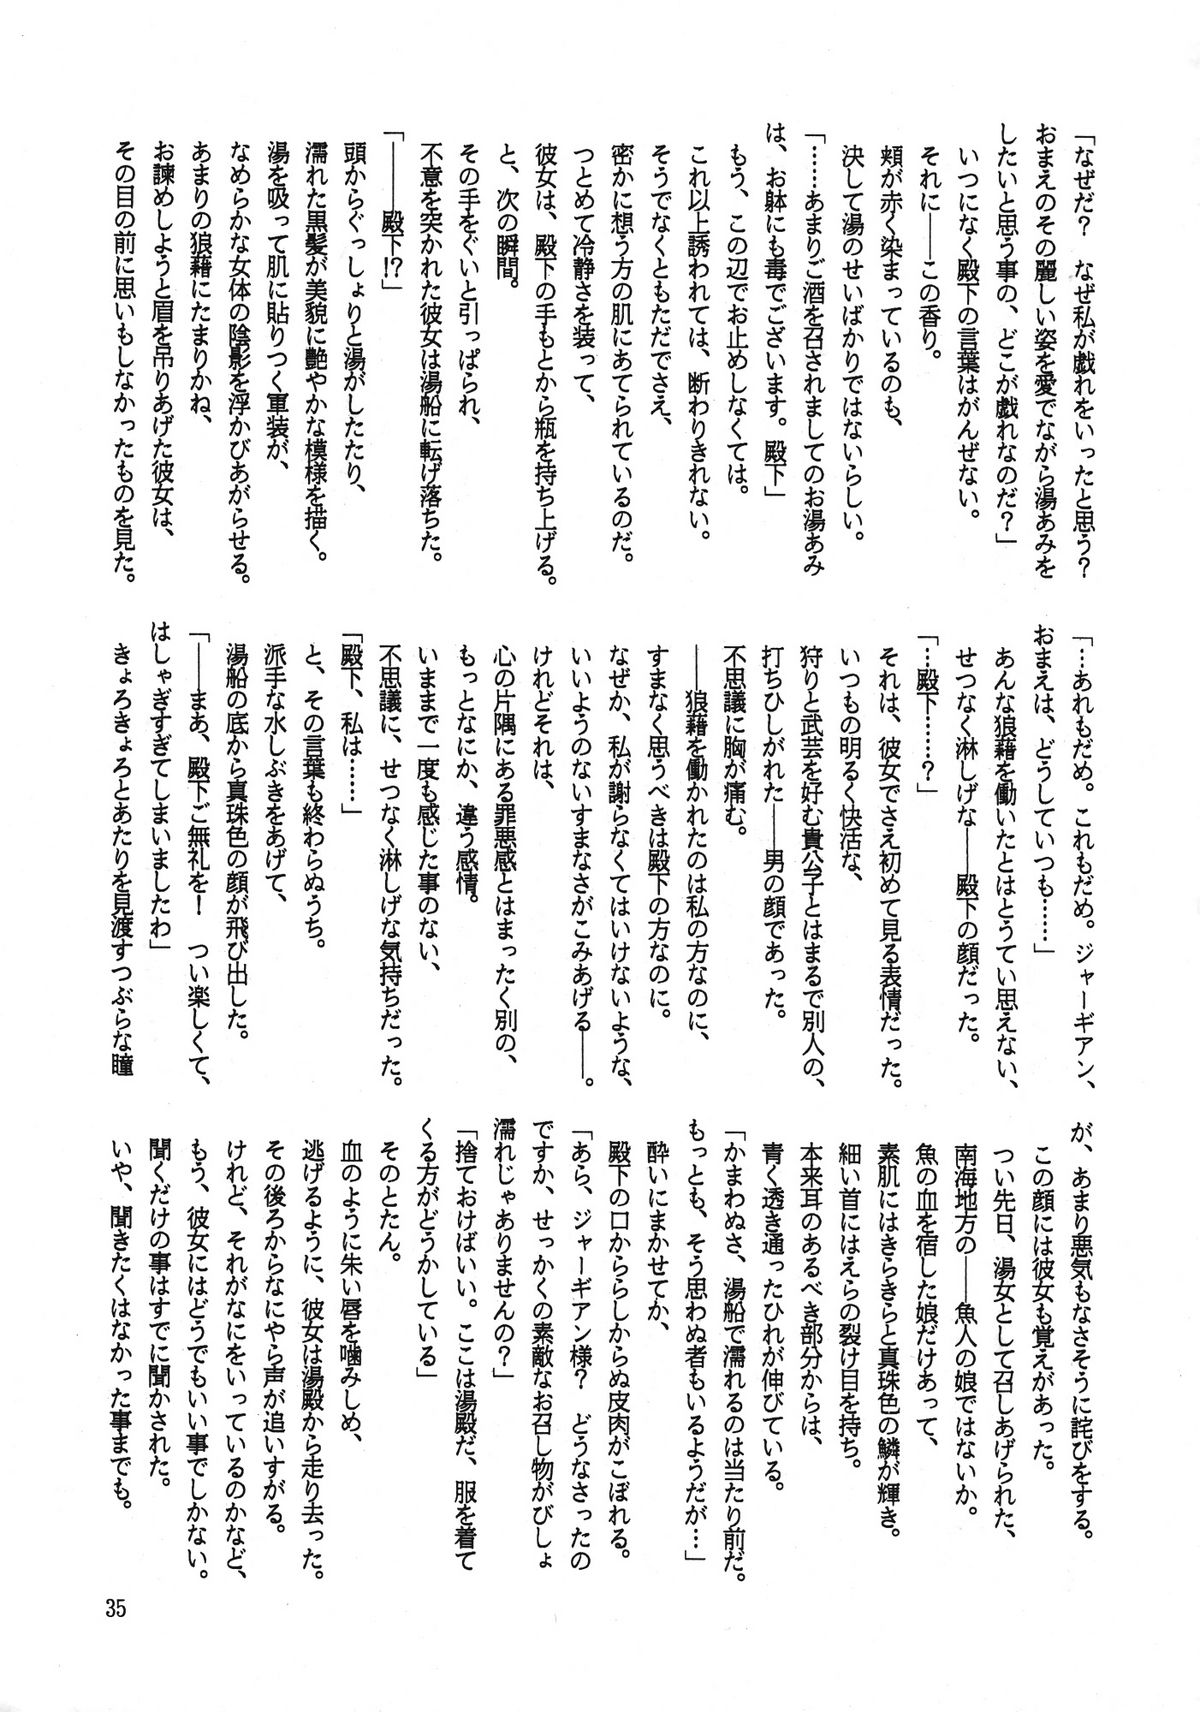 「なぜだ？　なぜ私が戯れをいったと思う？
おまえのその麗しい姿を愛でながら湯あみを
したいと思う事の、どこが戯れなのだ？」
いつになく殿下の言葉はがんぜない。
それに――この香り。
頬が赤く染まっているのも、
決して湯のせいばかりではないらしい。
「……あまりご酒を召されましてのお湯あみ
は、お躰にも毒でございます。殿下」
もう、この辺でお止めしなくては。
これ以上誘われては、断わりきれない。
そうでなくともただでさえ、
密かに想う方の肌にあてられているのだ。
つとめて冷静さを装って、
彼女は、殿下の手もとから瓶を持ち上げる。
と、次の瞬間。
その手をぐいと引っぱられ、
不意を突かれた彼女は湯船に転げ落ちた。
「――殿下!?」
頭からぐっしょりと湯がしたたり、
濡れた黒髪が美貌に艶やかな模様を描く。
湯を吸って肌に貼りつく軍装が、
なめらかな女体の陰影を浮かびあがらせる。
あまりの狼藉にたまりかね、
お諫めしようと眉を吊りあげた彼女は、
その目の前に思いもしなかったものを見た。
「…あれもだめ。これもだめ。ジャーギアン、
おまえは、どうしていつも……」
あんな狼藉を働いたとはとうてい思えない、
せつなく淋しげな――殿下の顔だった。
「…殿下……？」
それは、彼女でさえ初めて見る表情だった。
いつもの明るく快活な、
狩りと武芸を好む貴公子とはまるで別人の、
打ちひしがれた――男の顔であった。
不思議に胸が痛む。
――狼藉を働かれたのは私の方なのに、
すまなく思うべきは殿下の方なのに。
なぜか、私が謝らなくてはいけないような、
いいようのないすまなさがこみあげる――。
けれどそれは、
心の片隅にある罪悪感とはまったく別の、
もっとなにか、違う感情。
いままで一度も感じた事のない、
不思議に、せつなく淋しげな気持ちだった。
「殿下、私は……」
と、その言葉も終わらぬうち。
派手な水しぶきをあげて、
湯船の底から真珠色の顔が飛び出した。
「――まあ、殿下ご無礼を！　つい楽しくて、
はしゃぎすぎてしまいましたわ」
きょろきょろとあたりを見渡すつぶらな瞳
が、あまり悪気もなさそうに詫びをする。
この顔には彼女も覚えがあった。
つい先日、湯女として召しあげられた、
南海地方の――魚人の娘ではないか。
魚の血を宿した娘だけあって、
素肌にはきらきらと真珠色の鱗が輝き。
細い首にはえらの裂け目を持ち。
本来耳のあるべき部分からは、
青く透き通ったひれが伸びている。
「かまわぬさ、湯船で濡れるのは当たり前だ。
もっとも、そう思わぬ者もいるようだが…」
酔いにまかせてか、
殿下の口かららしからぬ皮肉がこぼれる。
「あら、ジャーギアン様？　どうなさったの
ですか、せっかくの素敵なお召し物がびしょ
濡れじゃありませんの？」
「捨ておけばいい。ここは湯殿だ、服を着て
くる方がどうかしている」
そのとたん。
血のように朱い唇を噛みしめ、
逃げるように、彼女は湯殿から走り去った。
その後ろからなにやら声が追いすがる。
けれど、それがなにをいっているのかなど、
もう、彼女にはどうでもいい事でしかない。
聞くだけの事はすでに聞かされた。
いや、聞きたくはなかった事までも。
35